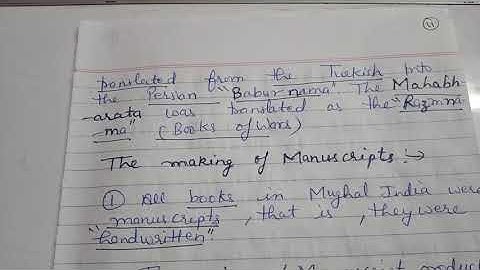 11
translated from the Turkish into
the Persian "Babur nama". The Mahabh
-arata was translated as the "Razmna
-ma" (Books of Wars)
The making of Manuscripts :→
① All books in Mughal India were
"manuscripts, that is, they were
"handwritten".
Manuscript